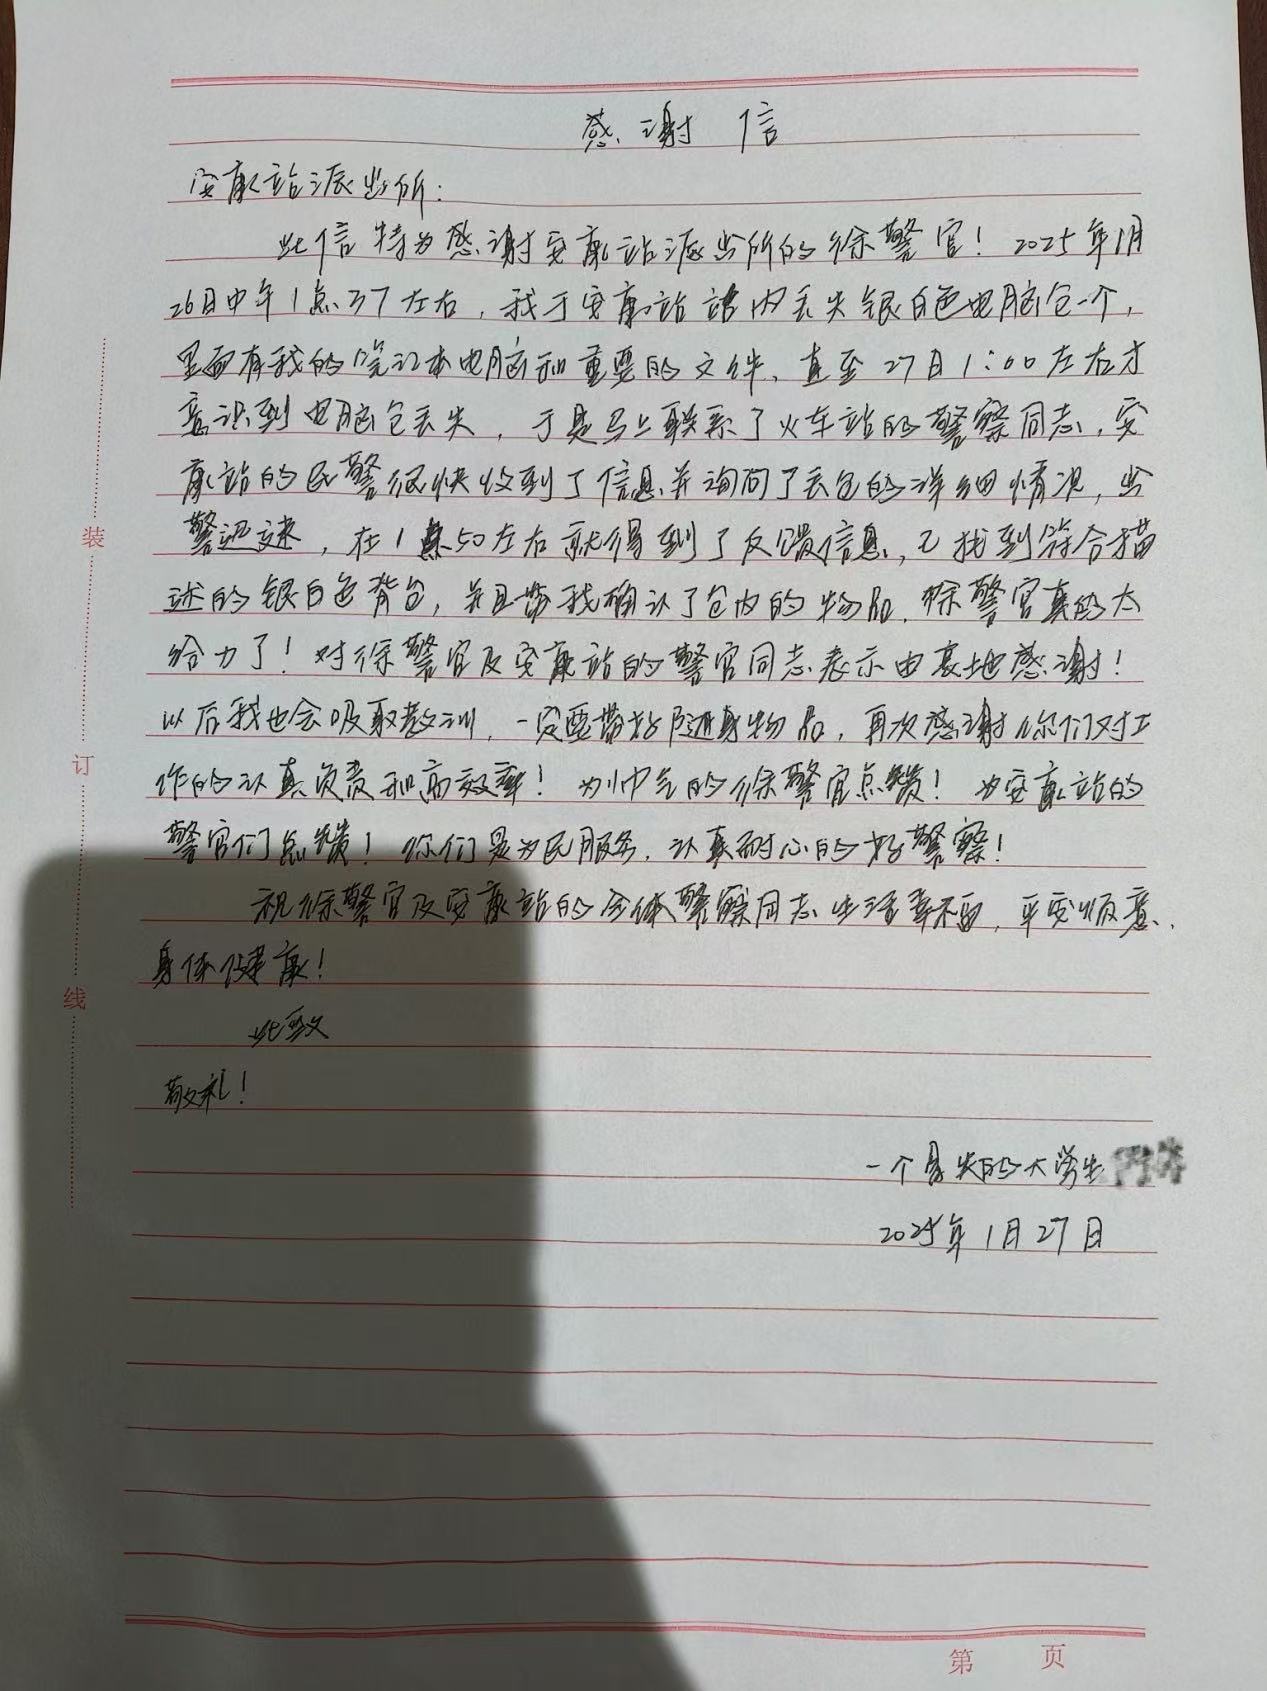 感谢信
安康站派出所:
此信特为感谢安康站派出所的徐警官！2025年1月
26日中午1点37左右，我于安康站站内丢失银白色电脑包一个，
里面有我的笔记本电脑和重要的文件，直至27日1:00左右才
意识到电脑包丢失，于是马上联系了火车站的警察同志，安
康站的民警很快收到了信息并询问了丢包的详细情况，出
警迅速，在1点50左右就得到了反馈信息，已找到符合描
述的银白色背包，并且带我确认了包内的物品，徐警官真的太
给力了！对徐警官及安康站的警官同志表示由衷地感谢！
以后我也会吸取教训，一定要带好随身物品，再次感谢你们对工
作的认真负责和高效率！为帅气的徐警官点赞！为安康站的
警官们点赞！你们是为民服务，认真耐心的好警察！
祝徐警官及安康站的全体警察同志生活幸福，平安顺意，
身体健康！
此致
敬礼！
一个冒失的大学生
2025年1月27日
装
订
线
第 页